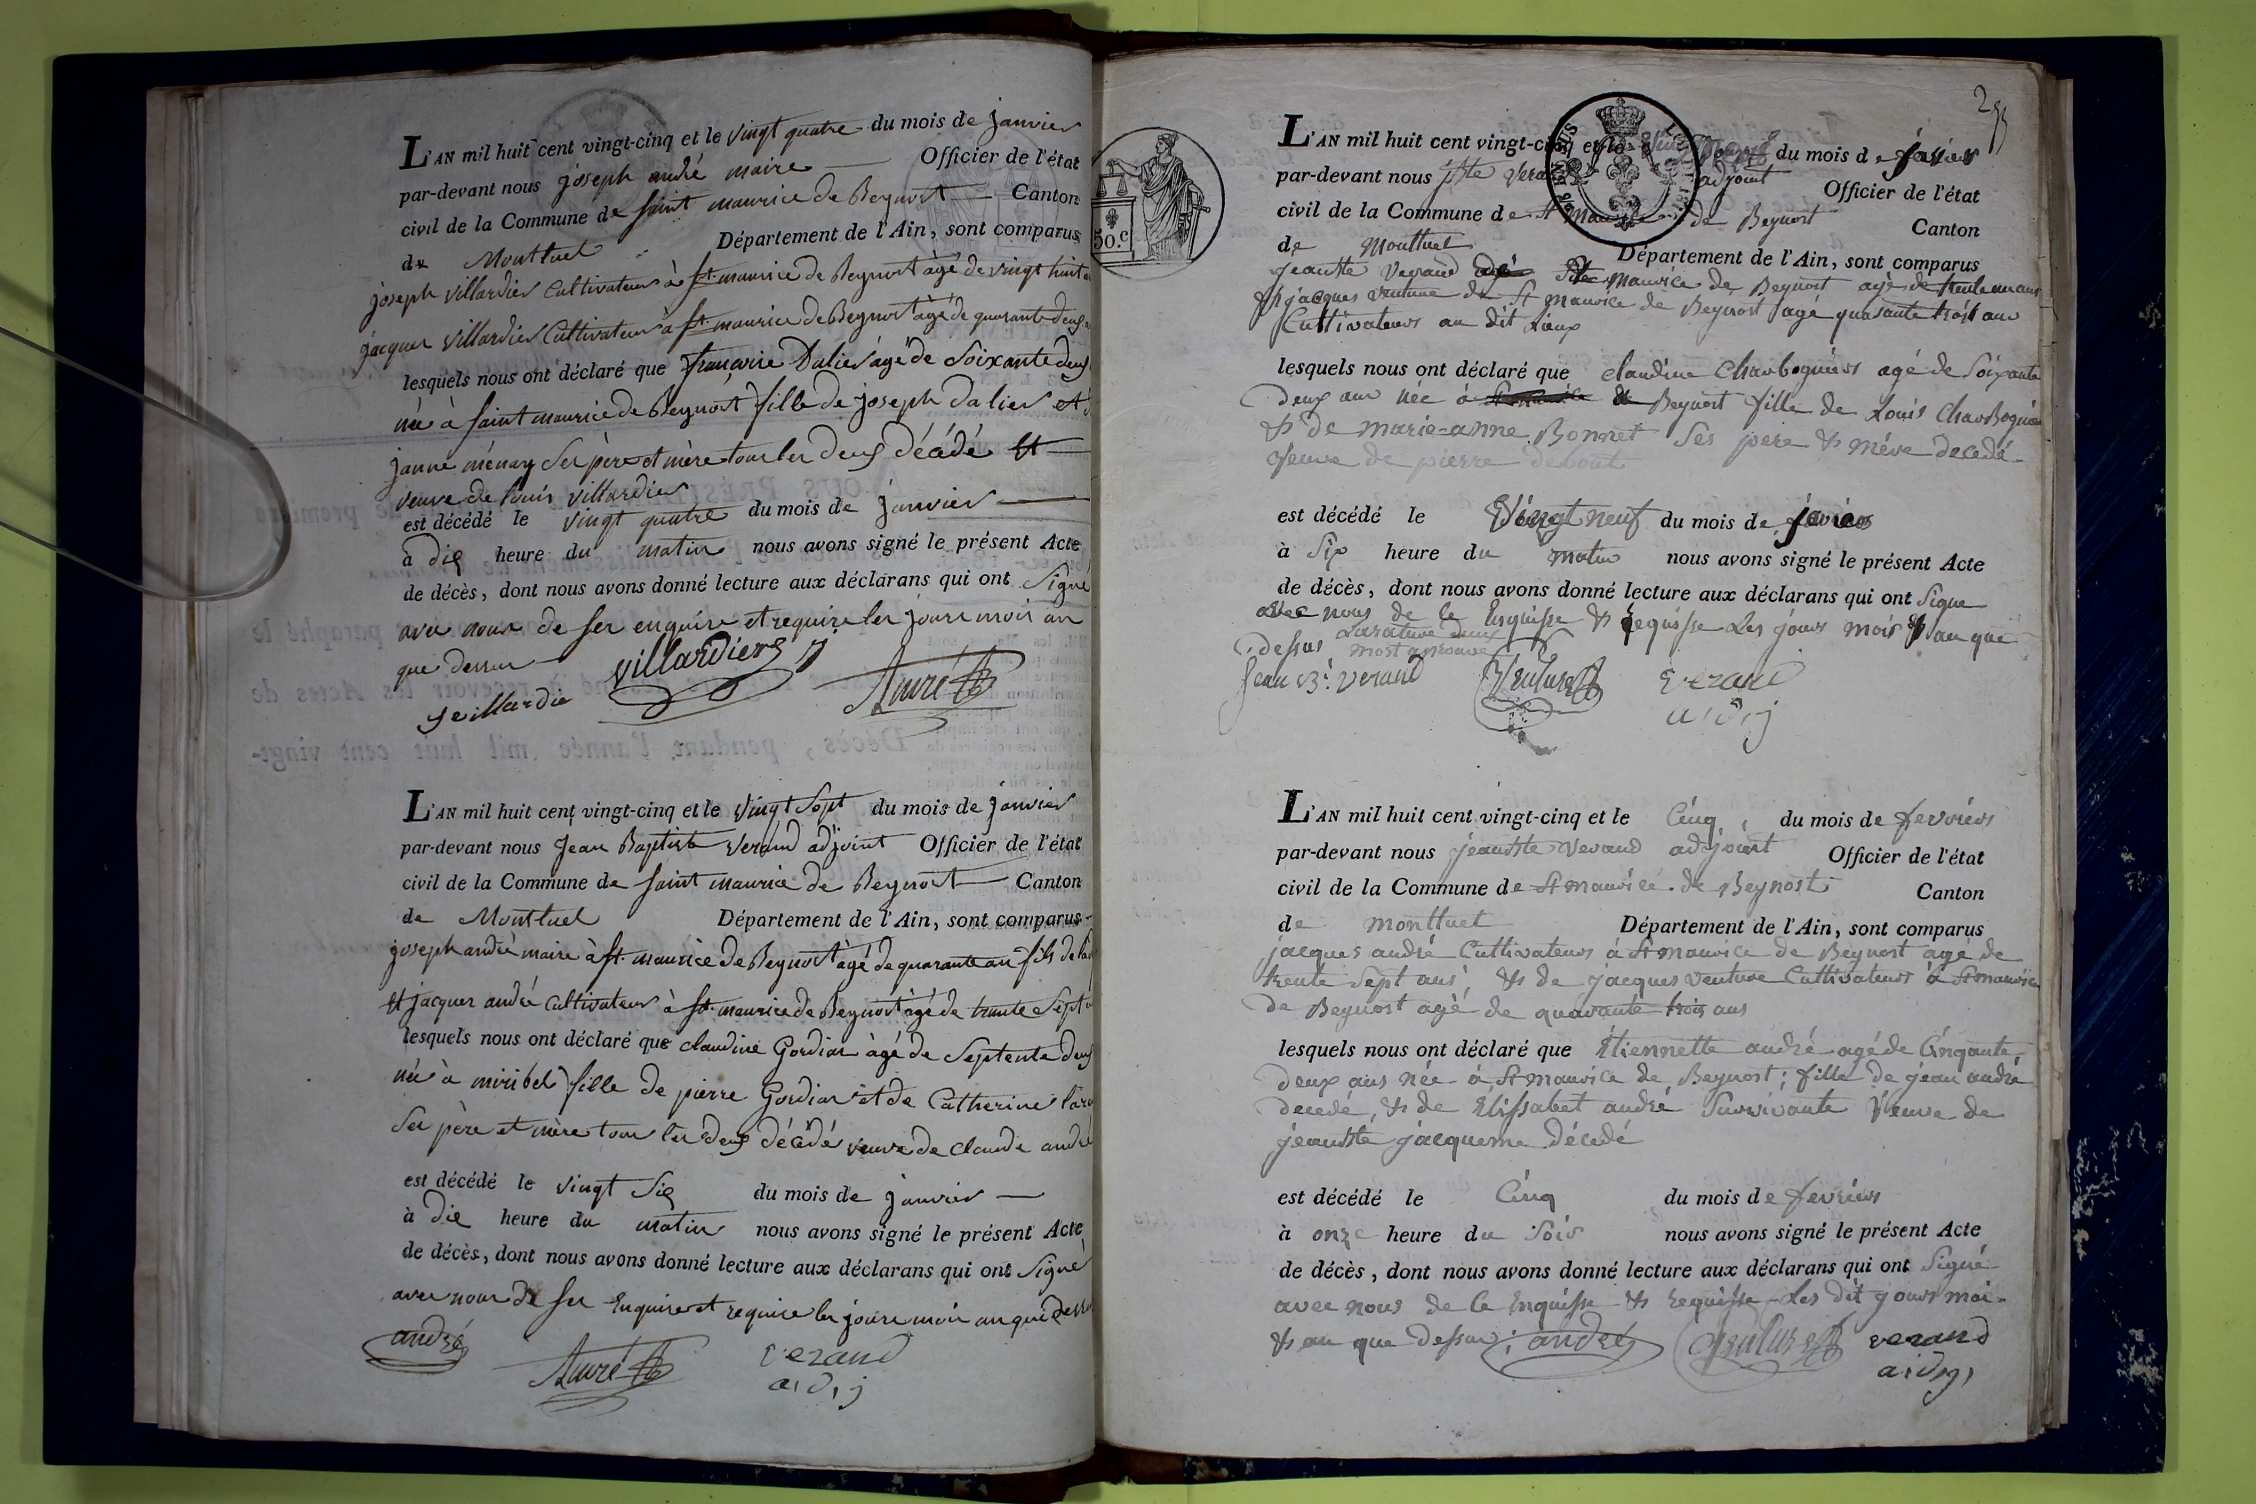 L'AN mil huit cent vingt-cinq et le vingt quatre du mois de janvier
par-devant nous joseph andré maire Officier de l'état
civil de la Commune de saint maurice de Beynost Canton
de Montluel Département de l'Ain, sont comparus
joseph villardier Cultivateur à st. maurice de Beynost âgé de vingt huit
jacques villardier Cultivateur à st. maurice de Beynost âgé de quarante deux
lesquels nous ont déclaré que françoise Dalier âgé de soixante deux
née à saint maurice de Beynost fille de joseph Dalier et
janne ménay ses père et mère tous les deux décédé et
veuve de louis villardier
est décédé le vingt quatre du mois de janvier
à dix heure du matin nous avons signé le présent Acte
de décès, dont nous avons donné lecture aux déclarans qui ont signé
avec nous de ser enquire et require les jours mois an
que dessus villardier
jvillardie André
L'AN mil huit cent vingt-cinq et le vingt sept du mois de janvier
par-devant nous Jean Baptiste verand adjoint Officier de l'état
civil de la Commune de saint maurice de Beynost Canton
de Montluel Département de l'Ain, sont comparus
joseph andré maire à st. maurice de Beynost âgé de quarante an fils de
et jacques andré cultivateur à st. maurice de Beynost âgé de trante sept
lesquels nous ont déclaré que claudine Gordian âgé de septente deux
née à miribel fille de pierre Gordian et de Catherine
ses père et mère tous les deux décédé veuve de claude andré
est décédé le vingt six du mois de janvier
à dix heure du matin nous avons signé le présent Acte
de décès, dont nous avons donné lecture aux déclarans qui ont signé
avec nous de ser Enquire et require les jours mois an que dessu
andré André verand
adj
L'AN mil huit cent vingt-cinq et le du mois de
par-devant nous jbte adjoint Officier de l'état
civil de la Commune de st de Beynost Canton
de Montluel Département de l'Ain, sont comparus
jeanbte verand st maurice de Beynost agé de trente un ans
& jacques venture de st maurice de Beynost agé quarante trois ans
Cultivateurs au dit Lieux
lesquels nous ont déclaré que claudine Charbognier agé de soixante
deux ans née à Beynost fille de Louis Charbognier
& de marie-anne Bonnet ses pere & mére decedé
veuve de pierre debout
est décédé le vingt neuf du mois de
à six heure du matin nous avons signé le présent Acte
de décès, dont nous avons donné lecture aux déclarans qui ont signe
avec nous de le Enquisse & requisse Les jours mois & an que
dessus
jean Bt. verand verand
adj
L'AN mil huit cent vingt-cinq et le Cinq du mois de fevriers
par-devant nous jeanbte verand adjoint Officier de l'état
civil de la Commune de st maurice de Beynost Canton
de montluel Département de l'Ain, sont comparus
jacques andré Cultivateurs à st maurice de Beynost agé de
trente sept ans, & de jacques venture Cultivateurs à st maurice
de Beynost agé de quarante trois ans
lesquels nous ont déclaré que Etiennette andré agé de Cinqante
deux ans née à st maurice de Beynost; fille de jean andré
decedé, & de Elissabet andré survivante veuve de
jeanbte jacqueme décedé
est décédé le Cinq du mois de fevriers
à onze heure du soir nous avons signé le présent Acte
de décès, dont nous avons donné lecture aux déclarans qui ont signé
avec nous de le Enquisse & requisse Les dit jours moi
& an que dessus; andré verand
adj
50.c